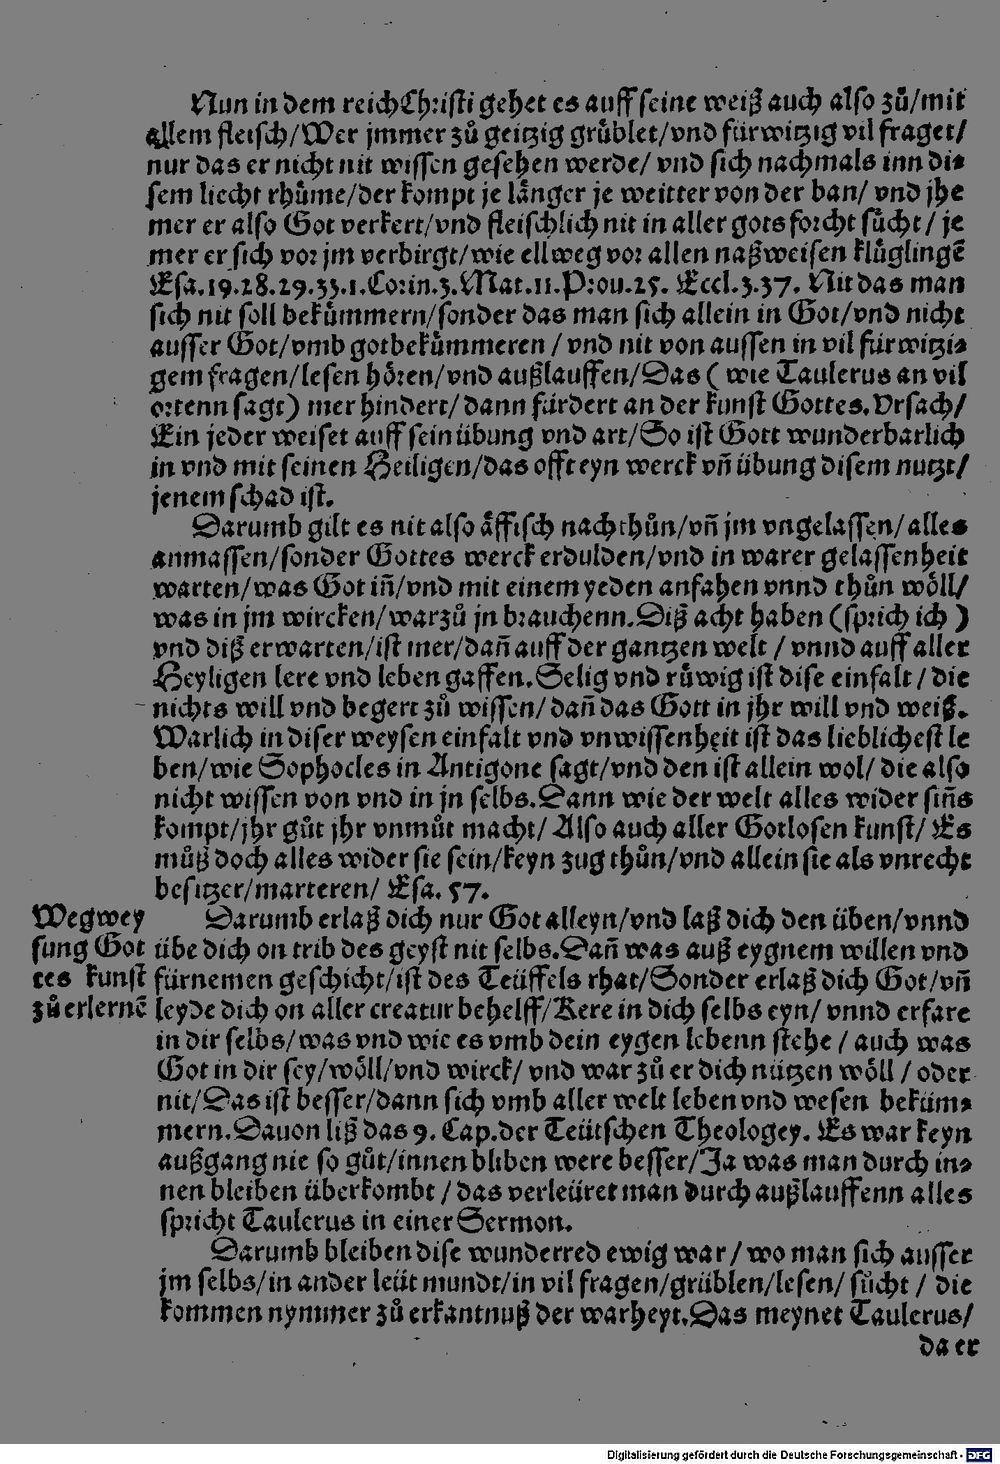 Nun in dem reich Christi gehet es auff seine weiß auch also zů/mit
allem fleisch/Wer jmmer zů geitzig grüblet/vnd fürwitzig vil fraget/
nur das er nicht nit wissen gesehen werde/ vnd sich nachmals inn di⸗
sem liecht rhůme/der kompt je länger je weitter von der ban/ vnd jhe
mer er also Got verkert/vnd fleischlich nit in aller gots forcht sůcht/ je
mer er sich vor jm verbirgt/wie ellweg vor allen naßweisen klüglingẽ
Esa.19.28.29.33.1.Corin.3.Mat.11.Prou.25. Eccl.3.37. Nit das man
sich nit soll bekümmern/sonder das man sich allein in Got/vnd nicht
ausser Got/vmb gotbekümmeren / vnd nit von aussen in vil fürwitzi⸗
gem fragen/lesen hören/vnd außlauffen/Das ( wie Taulerus an vil
ortenn sagt) mer hindert/ dann fürdert an der kunst Gottes.Vrsach/
Ein jeder weiset auff sein übung vnd art/So ist Gott wunderbarlich
in vnd mit seinen Heiligen/das offt eyn werck vñ übung disem nutzt/
jenem schad ist.
Darumb gilt es nit also äffisch nachthůn/vñ jm vngelassen/alles
anmassen/sonder Gottes werck erdulden/vnd in warer gelassenheit
warten/was Got iñ/vnd mit einem yeden anfahen vnnd thůn wöll/
was in jm wircken/warzů jn brauchenn.Diß acht haben (sprich ich )
vnd diß erwarten/ist mer/dañ auff der gantzen welt / vnnd auff aller
Heyligen lere vnd leben gaffen.Selig vnd růwig ist dise einfalt / die
nichts will vnd begert zů wissen/ dañ das Gott in jhr will vnd weiß.
Warlich in diser weysen einfalt vnd vnwissenheit ist das lieblichest le
ben/wie Sophocles in Antigone sagt/vnd den ist allein wol/ die also
nicht wissen von vnd in jn selbs.Dann wie der welt alles wider siñs
kompt/jhr gůt jhr vnmůt macht/ Also auch aller Gotlosen kunst/ Es
můß doch alles wider sie sein/keyn zug thůn/vnd allein sie als vnrecht
besitzer/marteren/ Esa. 57.
Wegwey
sung Got
tes kunst
zů erlernẽ
Darumb erlaß dich nur Got alleyn/vnd laß dich den üben/vnnd
übe dich on trib des geyst nit selbs.Dañ was auß eygnem willen vnd
fürnemen geschicht/ist des Teüffels rhat/Sonder erlaß dich Got/vñ
leyde dich on aller creatur behelff/Kere in dich selbs eyn/ vnnd erfare
in dir selbs/was vnd wie es vmb dein eygen lebenn stehe / auch was
Got in dir sey/wöll/vnd wirck/ vnd war zů er dich nützen wöll / oder
nit/Das ist besser/dann sich vmb aller welt leben vnd wesen bekům⸗
mern.Dauon liß das 9. Cap.der Teütschen Theologey. Es war keyn
außgang nie so gůt/innen bliben were besser/Ja was man durch in⸗
nen bleiben überkombt / das verleüret man durch außlauffenn alles
spricht Taulerus in einer Sermon.
Darumb bleiben dise wunderred ewig war / wo man sich ausser
jm selbs/in ander leüt mundt/in vil fragen/grüblen/lesen/ sůcht / die
kommen nymmer zů erkantnuß der warheyt.Das meynet Taulerus/
da er
Digitalisierung gefördert durch die Deutsche Forschungsgemeinschaft - DFG